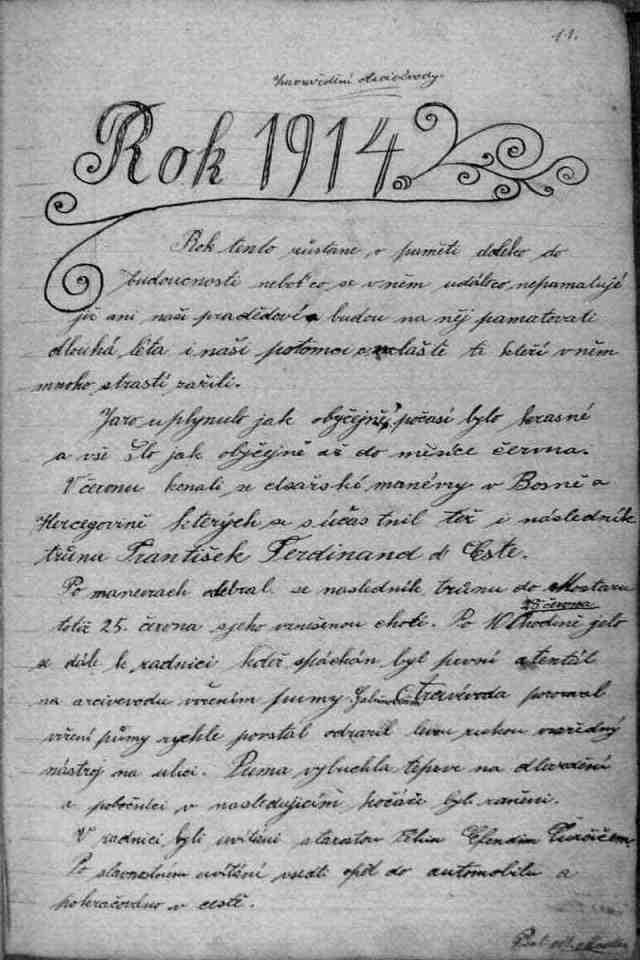 11.
Rok 1914.
Rok tento zůstane v paměti daleko do
budoucnosti neboť co se v něm událo, nepamatují
již ani naši pradědové a budou na něj pamatovati
dlouhá léta i naši potomci a zvláště ti kteří v něm
mnoho strastí zažili.
Jaro uplynulo jak obyčejně, počasí bylo krasné
a vše šlo jak obyčejně až do měsíce června.
V červnu konali se císařské manévry v Bosně a
Hercegovině kterých se súčastnil též i následník
trůnu František Ferdinand d' Este.
Po manevrach odebral se naslednik trůnu do Mostaru
28 června
totiž 25. června s jeho vznešenou chotí. Po 10 hodině jelo
se dále k radnici kdež spáchán byl první atentát
na arcivevodu vržením pumy Gabrinovicem. Arcivévoda pozoroval
vržení pumy rychle povstal odrazil levou rukou vražedný
nástroj na ulici. Puma vybuchla teprve na dláždění
a pobočníci v nasledujicím kočáře byli raněni.
V radnici byli uvítáni starostou Fehim Efendim Čurčičem
Po slavnostním uvítání vsedli opět do automobilu a
pokračováno v cestě.